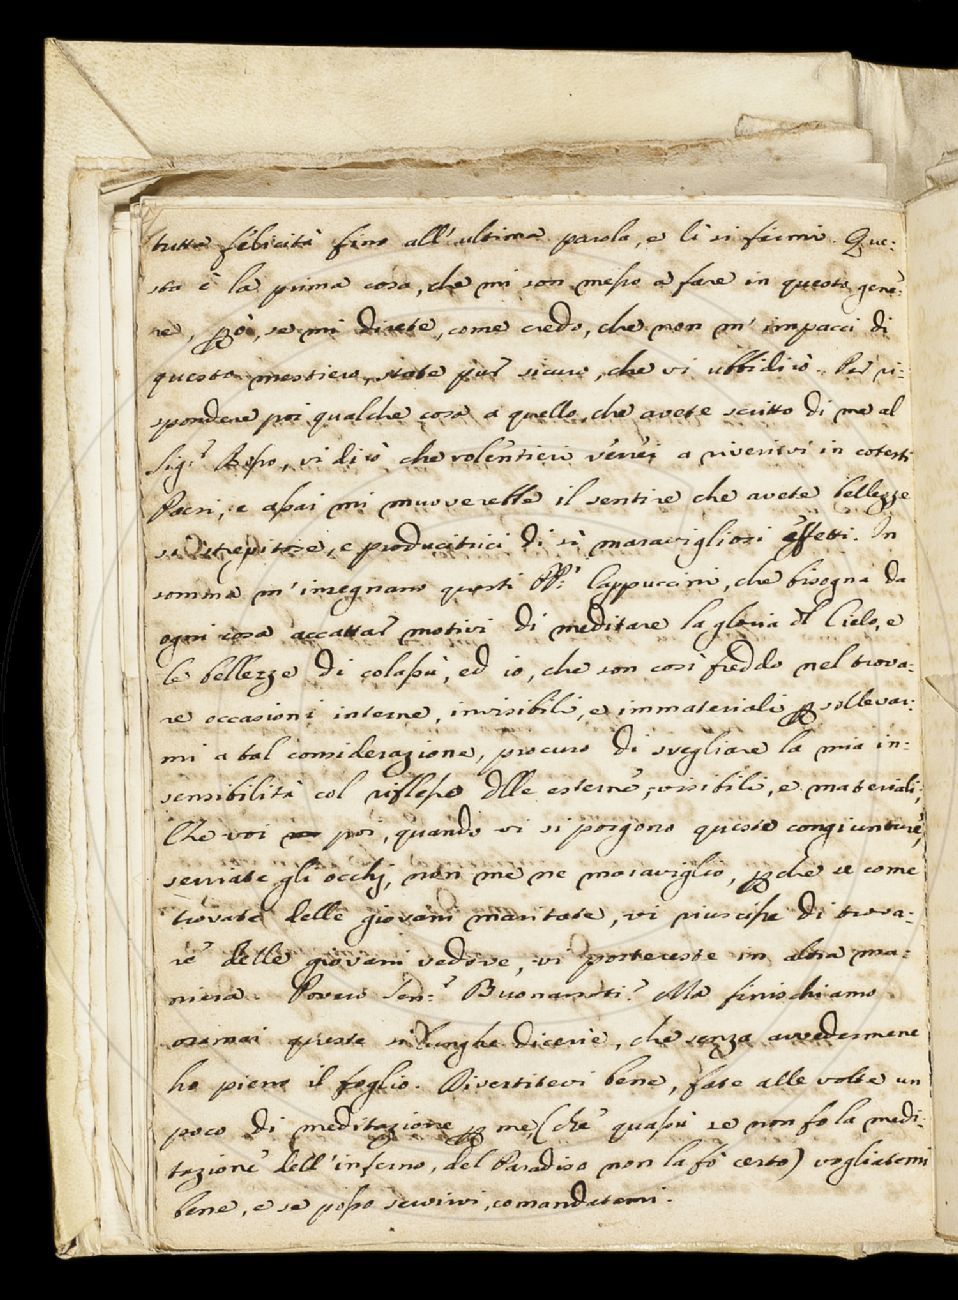 tutta felicità fino all'ultima parola, e lì si fermi. Que:
sta è la prima cosa, che mi son messo a fare in questo gene:
re, però, se mi direte, come credo, che non m'impacci di
questo mestiero, state pur sicuro, che vi ubbidirò. Per ri:
spondere poi qualche cosa a quello, che avete scritto di me al
Sigr. Besso, vi dirò che volentieri verrei a riverirvi in cotesti
Paesi, e assai mi muoverebbe il sentire che avete bellezze
sì strepitose, e producitrici di sì maravigliosi effetti. In
somma m'insegnano questi PPi. Cappuccini, che bisogna da
ogni cosa accattar motivi di meditare la gloria del Cielo, e
le bellezze di colassù, ed io, che son così freddo nel trova:
re occasioni interne, invisibili, e immateriali per sollevar:
mi a tal considerazione, procuro di svegliare la mia in:
sensibilità col riflesso delle esterne, visibili, e materiali;
Che voi poi, quando vi si porgono queste congiunture,
serriate gli occhj, non me ne maraviglio, perche se come
trovate delle giovani maritate, vi riuscisse di trova:
re delle giovani vedove, vi portereste in altra ma:
niera. Povero Senr. Buonarroti! Ma finischiamo
oramai queste sì lunghe dicerie, che senza avvedermene
ho pieno il foglio. Divertitevi bene, fate alle volte un
poco di meditazione per me, (che quassù se non fo la medi:
tazione dell'inferno, del Paradiso non la fò certo) vogliatemi
bene, e se posso servirvi, comandatemi.